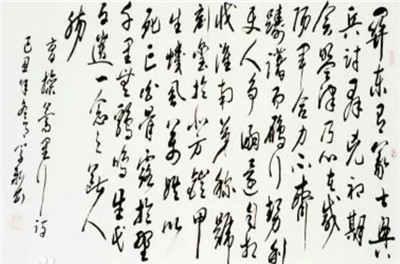 關東有義士興
兵討群兇初期
會盟津乃心在咸
陽軍合力不齊
躊躇而雁行勢利
使人爭嗣還自相
戕淮南弟稱號
刻璽於北方鎧甲
生蟣虱萬姓以
死亡白骨露於野
千里無雞鳴生民
百遺一念之斷人
腸
曹操蒿里行詩
己丑年冬